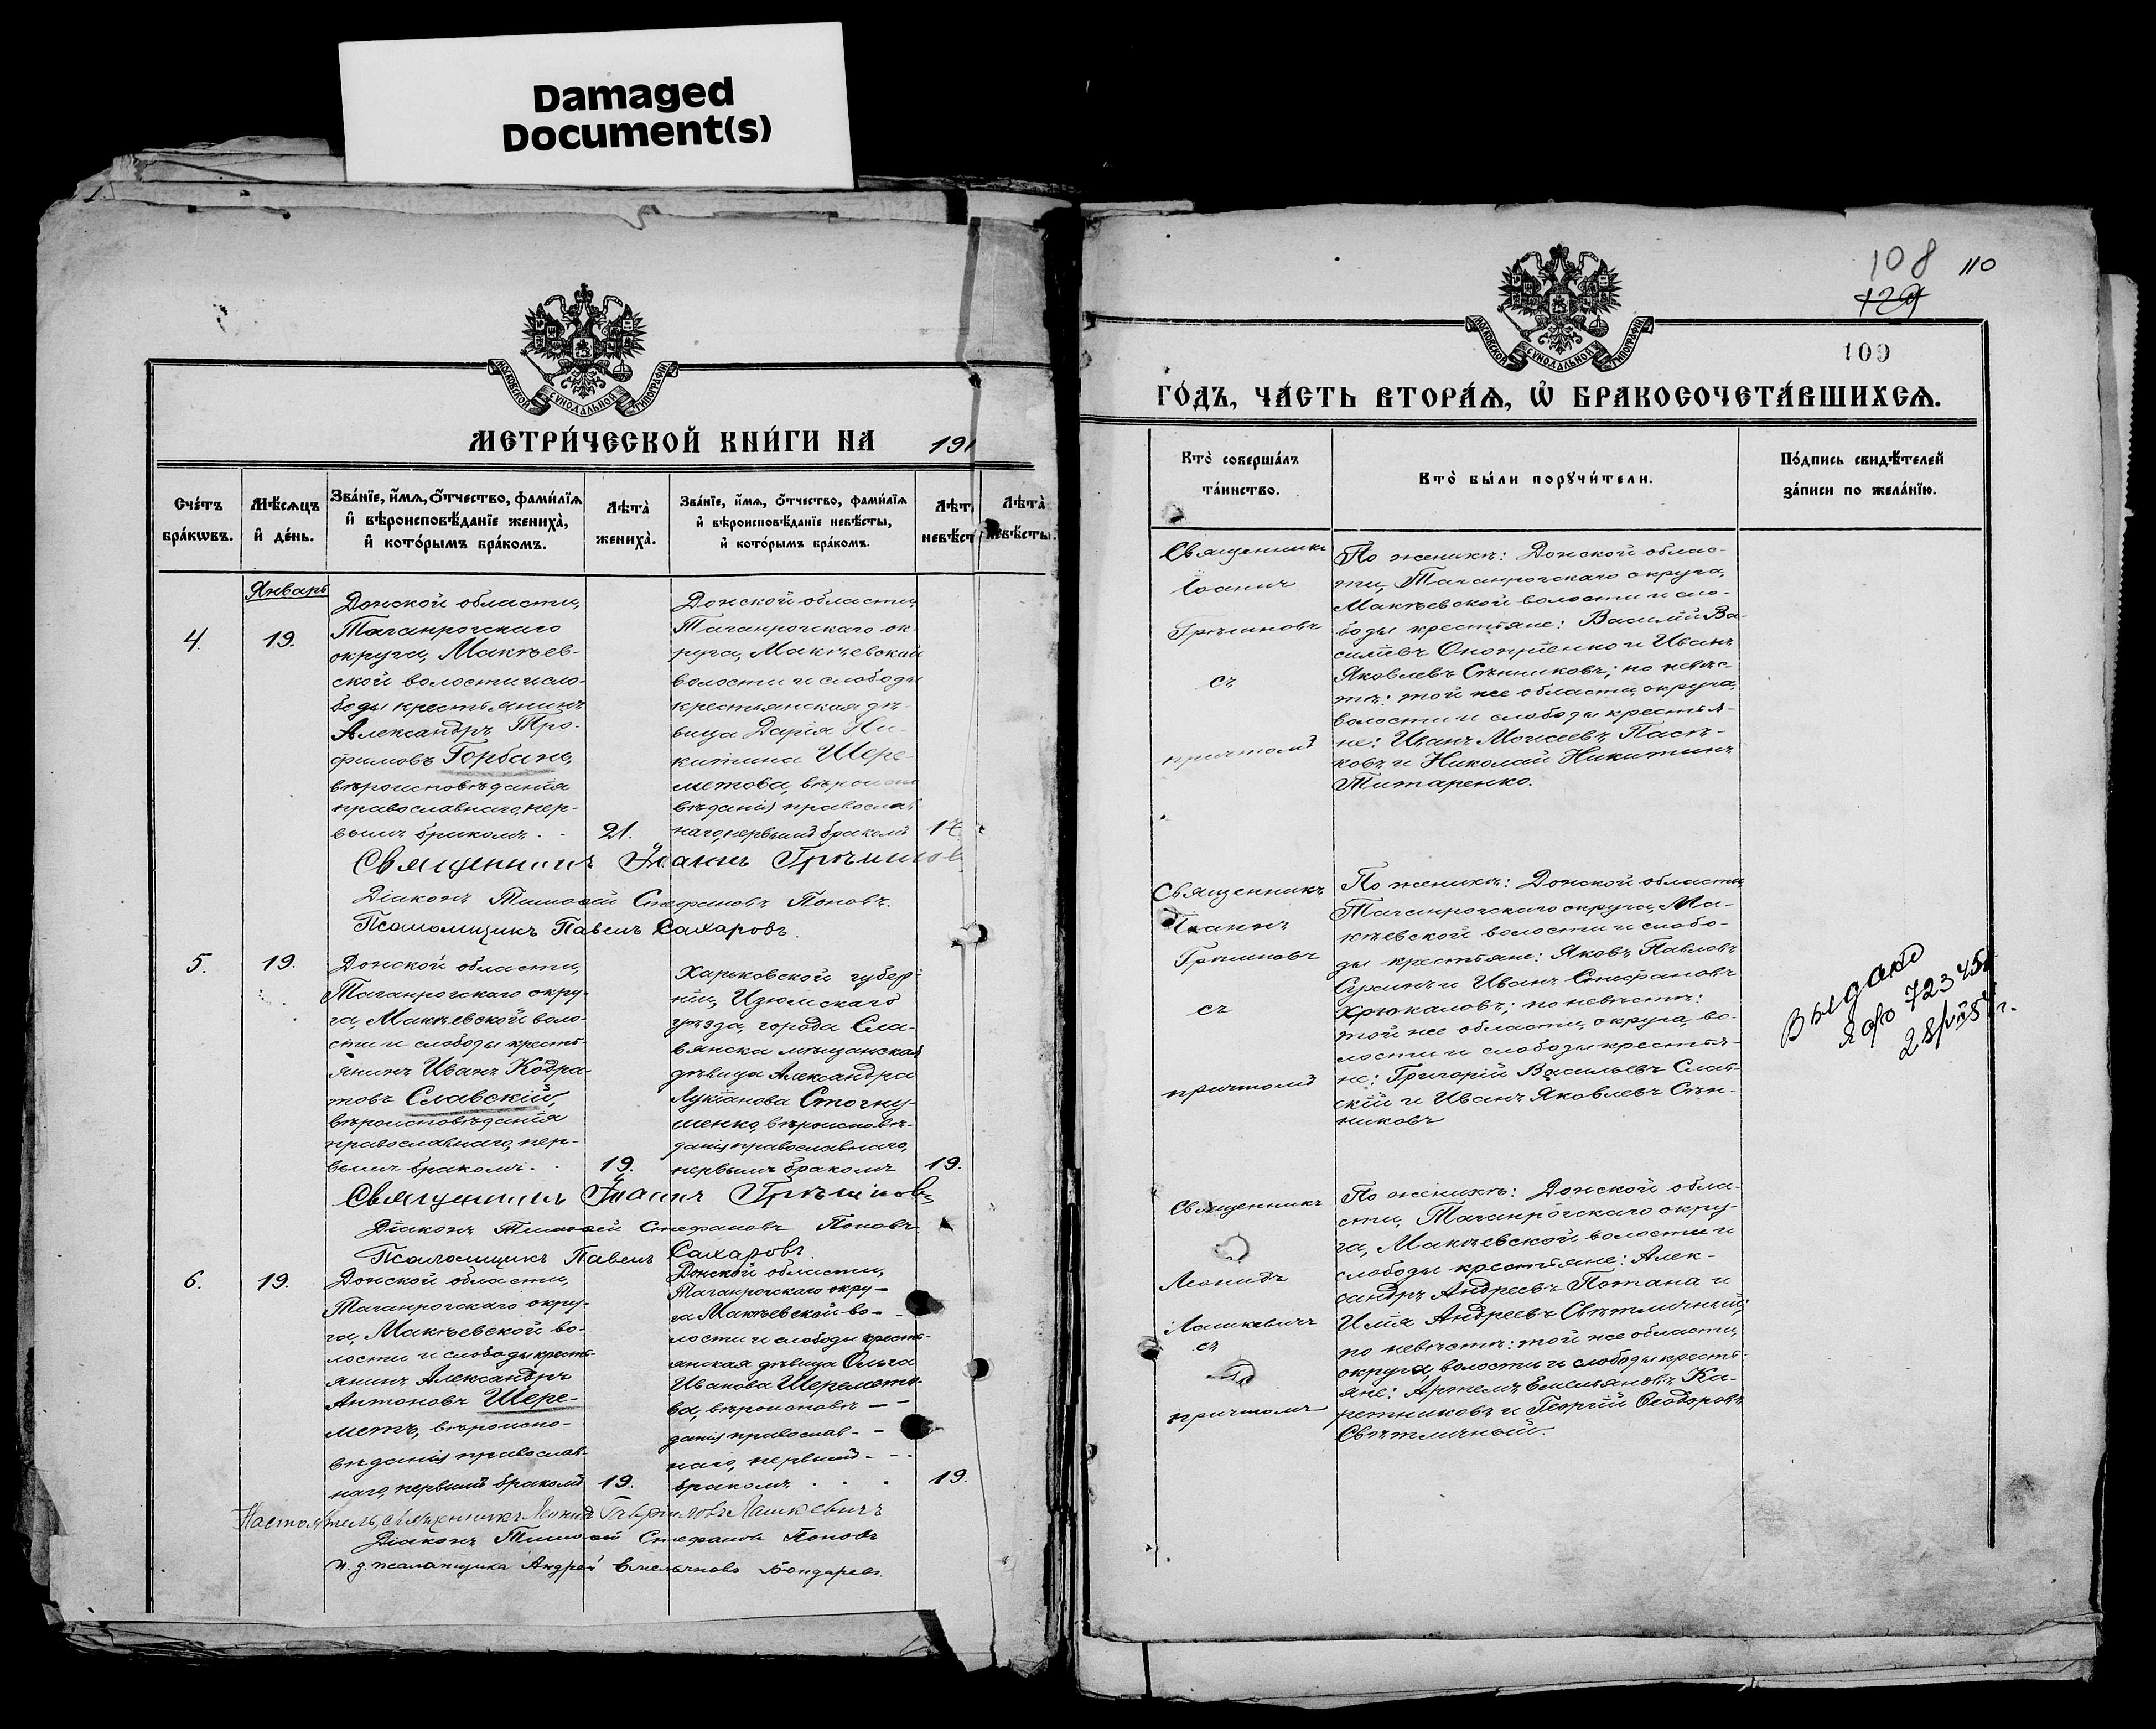 Damaged
Document(s)
МОСКОВСКОЙ СѴНОДАЛЬНОЙ ТИПОГРАФІИ
МЕТРИ́ЧЕСКОЙ КНИ́ГИ НА 191
Сче́тъ бра́кѡвъ.
Мѣ́сяцъ и҆ де́нь.
Зва́нїе, и҆́мѧ, ѻ҆́тчество, фами́лїѧ и҆ вѣроисповѣ́данїе жениха̀, и҆ кото́рымъ бра́комъ.
Лѣ́та̀ жениха̀.
Зва́нїе, и҆́мѧ, ѻ҆́тчество, фами́лїѧ и҆ вѣроисповѣ́данїе невѣ́сты, и҆ кото́рымъ бра́комъ.
Лѣ́т невѣ́ст
Лѣ́та̀ невѣ́сты.
Январь
4.
19.
Донской области,
Таганрогскаго
округа, Макѣев-
ской волости и сло-
боды крестьянинъ
Александръ Тро-
фимовъ Горбань,
вѣроисповѣданія
православнаго, пер-
вымъ бракомъ.
21.
Донской области,
Таганрогскаго ок-
руга, Макѣевской
волости и слободы
крестьянская дѣ-
вица Дарія Ни-
китина Шере-
метова, вѣроиспо
вѣданія православ
наго, первымъ бракомъ
Священникъ Іоаннъ Гречинов
Діаконъ Тимоѳей Стефановъ Поповъ.
Псаломщикъ Павелъ Сахаровъ.
5.
19.
Донской области,
Таганрогскаго окру-
га, Макѣевской воло-
сти и слободы кресть-
янинъ Иванъ Кодра-
товъ Славскій,
вѣроисповѣданія
православнаго, пер-
вымъ бракомъ.
19.
Харьковской губер-
ніи, Изюмскаго
уѣзда, города Сла-
вянска мѣщанская
дѣвица Александра
Лукіанова Стогну-
шенко, вѣроисповѣ-
данія православнаго,
первымъ бракомъ
19.
Священникъ Іоаннъ Гречиновъ
Діаконъ Тимоѳей Стефановъ Поповъ
Псаломщикъ Павелъ Сахаровъ.
6.
19.
Донской области,
Таганрогскаго окру-
га, Макѣевской во-
лости и слободы кресть-
янинъ Александръ
Антоновъ Шере-
метъ, вѣроиспо-
вѣданія православ-
наго, первымъ бракомъ
19.
Донской области,
Таганрогскаго окру-
га Макѣевской во-
лости и слободы кресть-
янская дѣвица Ольга
Иванова Шеремето-
ва, вѣроисповѣ-
данія православ-
наго, первымъ
бракомъ
19.
Настоятель, священникъ Леонид Гавриловъ Лашкевичъ
Діаконъ Тимоѳей Стефановъ Поповъ
и. д. псаломщика Андрей Емельяновъ Бондаревъ.
108 110
129
109
МОСКОВСКОЙ СѴНОДАЛЬНОЙ ТИПОГРАФІИ
ГО́ДЪ, ЧА́СТЬ ВТОРА́Ѧ, Ѡ҆ БРАКОСОЧЕТА́ВШИХСѦ.
Кто̀ соверша́лъ та́инство.
Кто̀ бы́ли порꙋчи́тели.
По́дпись свидѣ́телей за́писи по жела́нїю.
Священникъ
Іоаннъ
Гречиновъ
съ
причтомъ
По женихѣ: Донской облас-
ти, Таганрогскаго округа,
Макѣевской волости и сло-
боды крестьяне: Василій Ва-
сильевъ Оноприенко и Иванъ
Яковлевъ Сѣнниковъ; по невѣс-
тѣ: той же области, округа,
волости и слободы крестья-
не: Иванъ Моисеевъ Пасѣ-
ковъ и Николай Никитинъ
Титаренко.
Священникъ
Іоаннъ
Гречиновъ
съ
причтомъ
По женихѣ: Донской области,
Таганрогскаго округа, Ма-
кѣевской волости и слобо-
ды крестьяне: Яковъ Павловъ
Сухинъ и Иванъ Стефановъ
Хрюкаловъ; по невѣстѣ:
той же области, округа, во-
лости и слободы крестья-
не: Григорій Васильевъ Слав-
скій и Иванъ Яковлевъ Сѣн-
никовъ
Выдано
723452
Священникъ
Леонидъ
Лашкевичъ
съ
причтомъ
По женихѣ: Донской обла-
сти, Таганрогскаго окру-
га, Макѣевской волости и
слободы крестьяне: Алек-
сандръ Андреевъ Потана и
Илія Андреевъ Свѣтличный;
по невѣстѣ: той же области,
округа, волости и слободы кресть-
яне: Артемъ Емельяновъ Ка-
ретниковъ и Георгій Ѳеодоровъ
Свѣтличный.